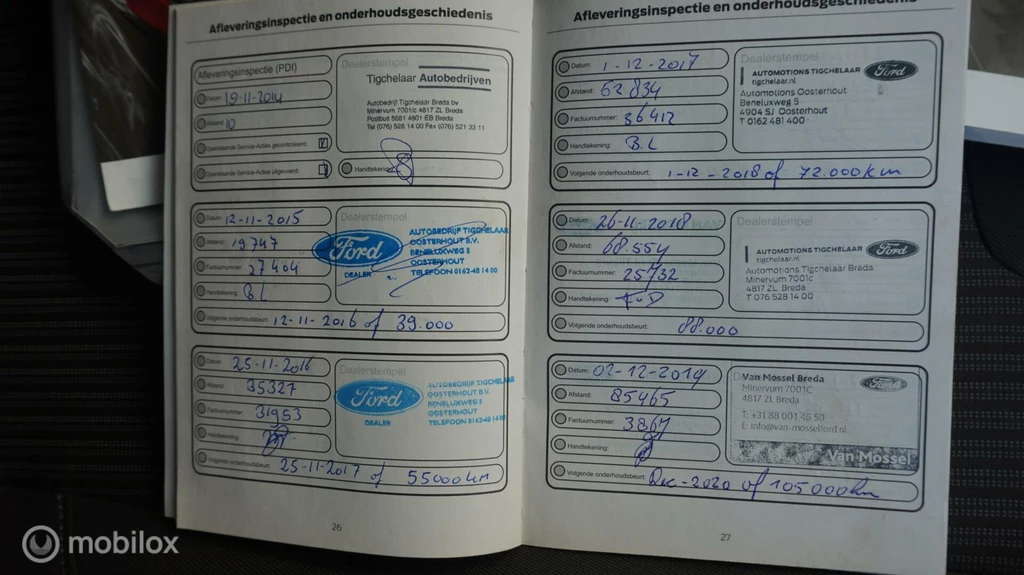 Afleveringsinspectie en onderhoudsgeschiedenis
Afleveringsinspectie (PDI)
Datum: 19-11-2014
Afstand: 10
Openstaande Service-Acties gecontroleerd:
Openstaande Service-Acties uitgevoerd:
Dealerstempel
Tigchelaar Autobedrijven
Autobedrijf Tigchelaar Breda bv
Minervum 7001c 4817 ZL Breda
Postbus 5681 4801 EB Breda
Tel (076) 528 14 00 Fax (076) 521 33 11
Handtekening:
Datum: 12-11-2015
Afstand: 19747
Factuurnummer: 27404
Handtekening: BL
Dealerstempel
Ford
DEALER
AUTOBEDRIJF TIGCHELAAR
OOSTERHOUT B.V.
BENELUXWEG 5
OOSTERHOUT
TELEFOON 0162-48 14 00
Volgende onderhoudsbeurt: 12-11-2016 of 39.000
Datum: 25-11-2016
Afstand: 35327
Factuurnummer: 31953
Handtekening:
Dealerstempel
Ford
DEALER
AUTOBEDRIJF TIGCHELAAR
OOSTERHOUT B.V.
BENELUXWEG 5
OOSTERHOUT
TELEFOON 0162-48 14 00
Volgende onderhoudsbeurt: 25-11-2017 of 55000km
26
Afleveringsinspectie en onderhoudsgeschiedenis
Datum: 1-12-2017
Afstand: 52834
Factuurnummer: 36412
Handtekening: B.L
Dealerstempel
AUTOMOTIONS TIGCHELAAR
tigchelaar.nl
Ford
Automotions Oosterhout
Beneluxweg 5
4904 SJ Oosterhout
T 0162 481 400
Volgende onderhoudsbeurt: 1-12-2018 of 72.000km
Datum: 26-11-2018
Afstand: 68.554
Factuurnummer: 25732
Handtekening:
Dealerstempel
AUTOMOTIONS TIGCHELAAR
tigchelaar.nl
Ford
Automotions Tigchelaar Breda
Minervum 7001c
4817 ZL Breda
T 076 528 14 00
Volgende onderhoudsbeurt: 88.000
Datum: 02-12-2019
Afstand: 85465
Factuurnummer: 3867
Handtekening:
Van Mossel Breda
Minervum 7001C
4817 ZL Breda
Ford
T: +31 88 001 46 50
E: info@van-mosselford.nl
Van Mossel
Volgende onderhoudsbeurt: Dec-2020 of 105000km
27
mobilox